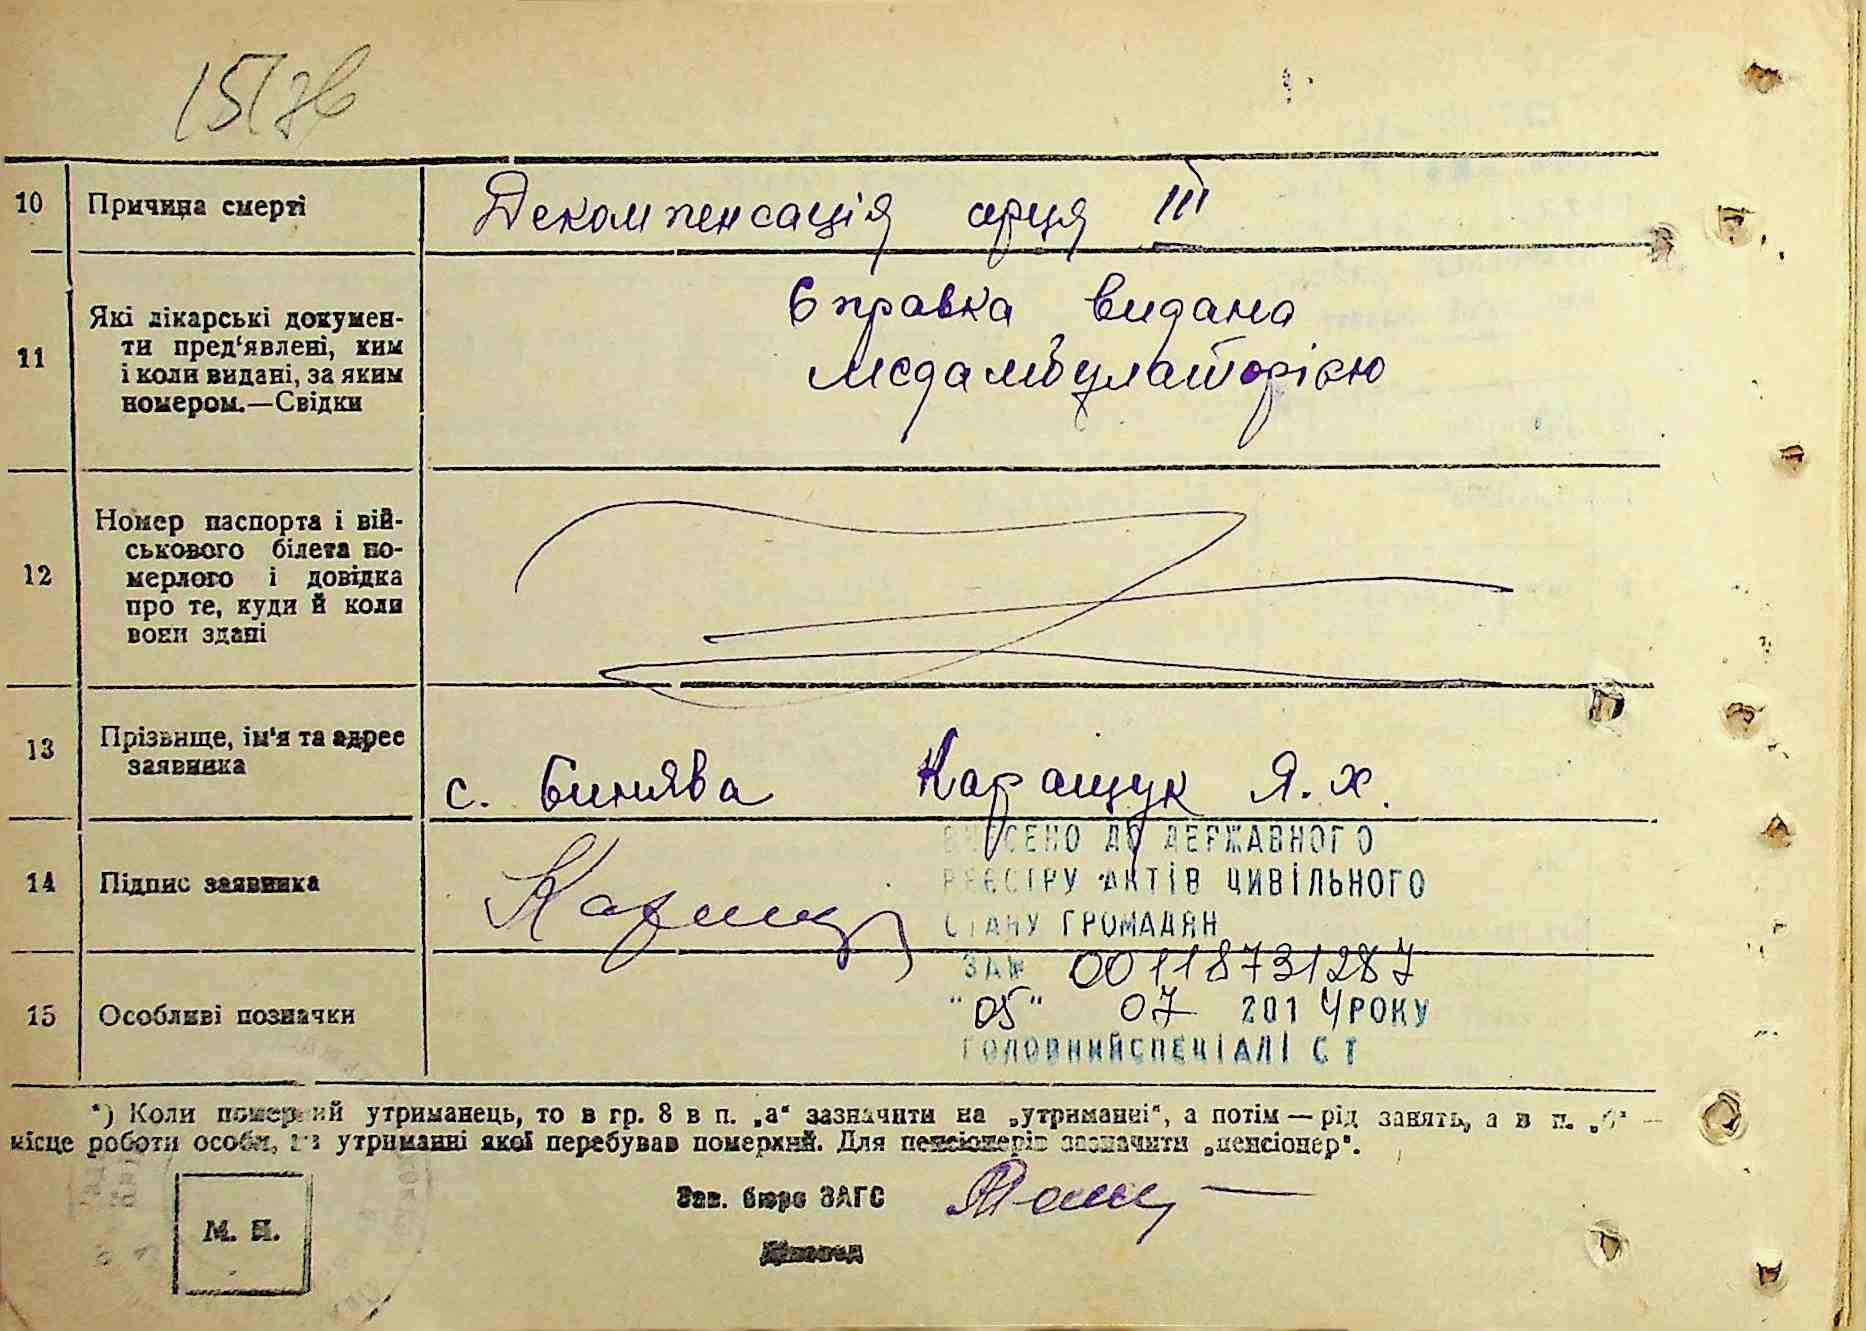 10 Причина смерті Декомпенсація серця III
11 Які лікарські докумен-
ти пред'явлені, ким
і коли видані, за яким
номером.—Свідки
Справка видана
медамбулаторією
12 Номер паспорта і вій-
ськового білета по-
мерлого і довідка
про те, куди й коли
вони здані
13 Прізвище, ім'я та адрес
заявника
с. Бинява Каращук Я. Х.
14 Підпис заявника
15 Особливі позначки
ВНЕСЕНО ДО ДЕРЖАВНОГО
РЕЄСТРУ АКТІВ ЦИВІЛЬНОГО
СТАНУ ГРОМАДЯН
ЗА № 00118731287
"05" 07 2014 РОКУ
ГОЛОВНИЙ СПЕЦІАЛІСТ
*) Коли померлий утриманець, то в гр. 8 в п. „а“ зазначити на „утриманні“, а потім — рід занять, а в п. „б“ —
місце роботи особи, на утриманні якої перебував померлий. Для пенсіонерів зазначити „пенсіонер“.
Зав. бюро ЗАГС
М. П.